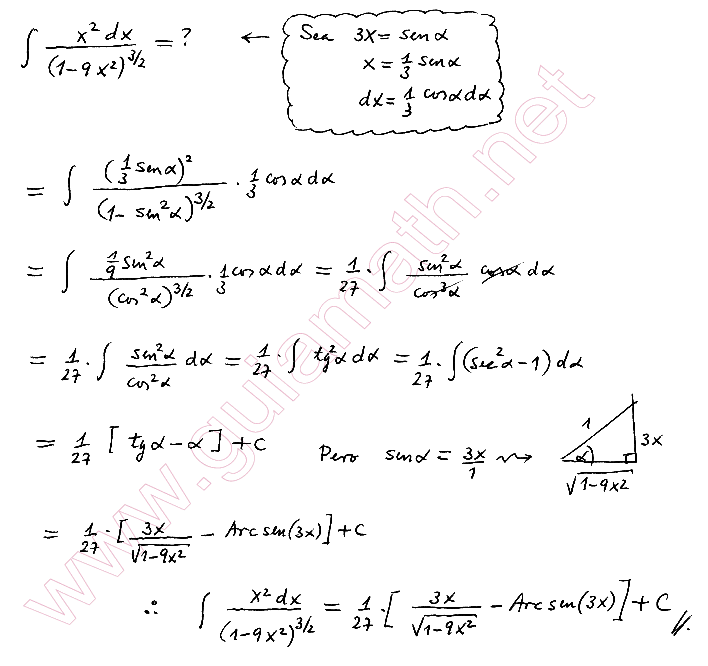 ∫ x² dx / (1-9x²)^3/2 = ? ← Sea 3x = senα
x = 1/3 senα
dx = 1/3 cosα dα
= ∫ (1/3 senα)² / (1- sen²α)^3/2 · 1/3 cosα dα
= ∫ 1/9 sen²α / (cos²α)^3/2 · 1/3 cosα dα = 1/27 · ∫ sen²α / cos³α cosα dα
= 1/27 · ∫ sen²α / cos²α dα = 1/27 · ∫ tg²α dα = 1/27 · ∫(sec²α - 1) dα
= 1/27 [ tgα - α ] + C Pero senα = 3x/1 ⇝ 1 3x α √1-9x²
= 1/27 · [ 3x / √1-9x² - Arcsen(3x) ] + C
∴ ∫ x² dx / (1-9x²)^3/2 = 1/27 · [ 3x / √1-9x² - Arcsen(3x) ] + C //.
www.guiamath.net